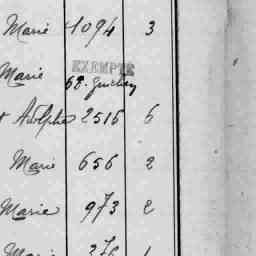 Marie 1094 3
Marie EXEMPTE
68.
Adolphe 2515 6
Marie 656 2
Marie 973 2
Marie 376 1